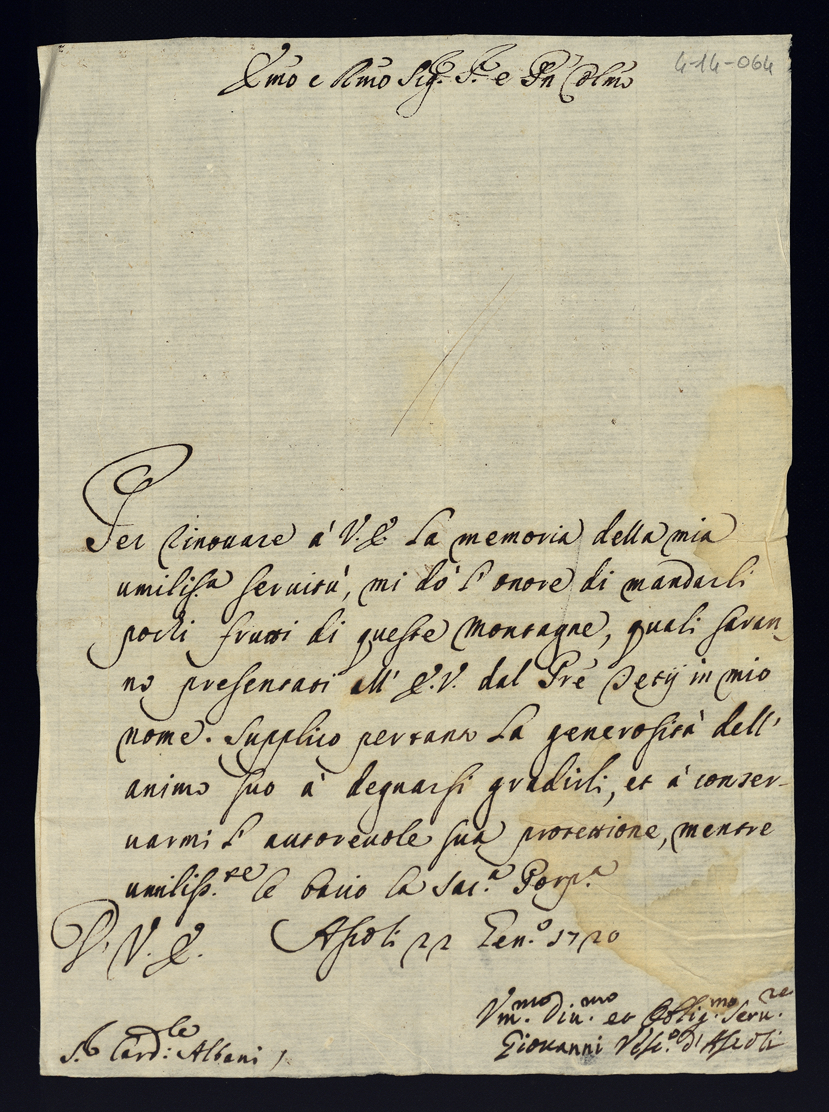 Emo e Rmo Sig.r P.e e Pñ Colmo
4-14-064
Per rinouare à V.E. la memoria della mia
umiliss.a seruitù, mi dò l'onore di mandarli
pochi frutti di queste Montagne, quali saran
no presentati all'E.V. dal Pre Petij in mio
nome. Supplico pertanto la generosità dell'
animo suo à degnarsi gradirli, et à conser-
uarmi l'autoreuole sua protettione, mentre
umiliss.te le bacio la Sac.a Porp.a
D. V. E. Ascoli 22 Gen.o 1720
Vm.mo Diu.mo et Oblig.mo Seru.re
Giouanni Vesc.o d'Ascoli
S.r Card.le Albani